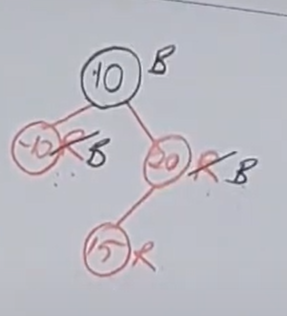 10 B
-10 R B 20 R B
15 R